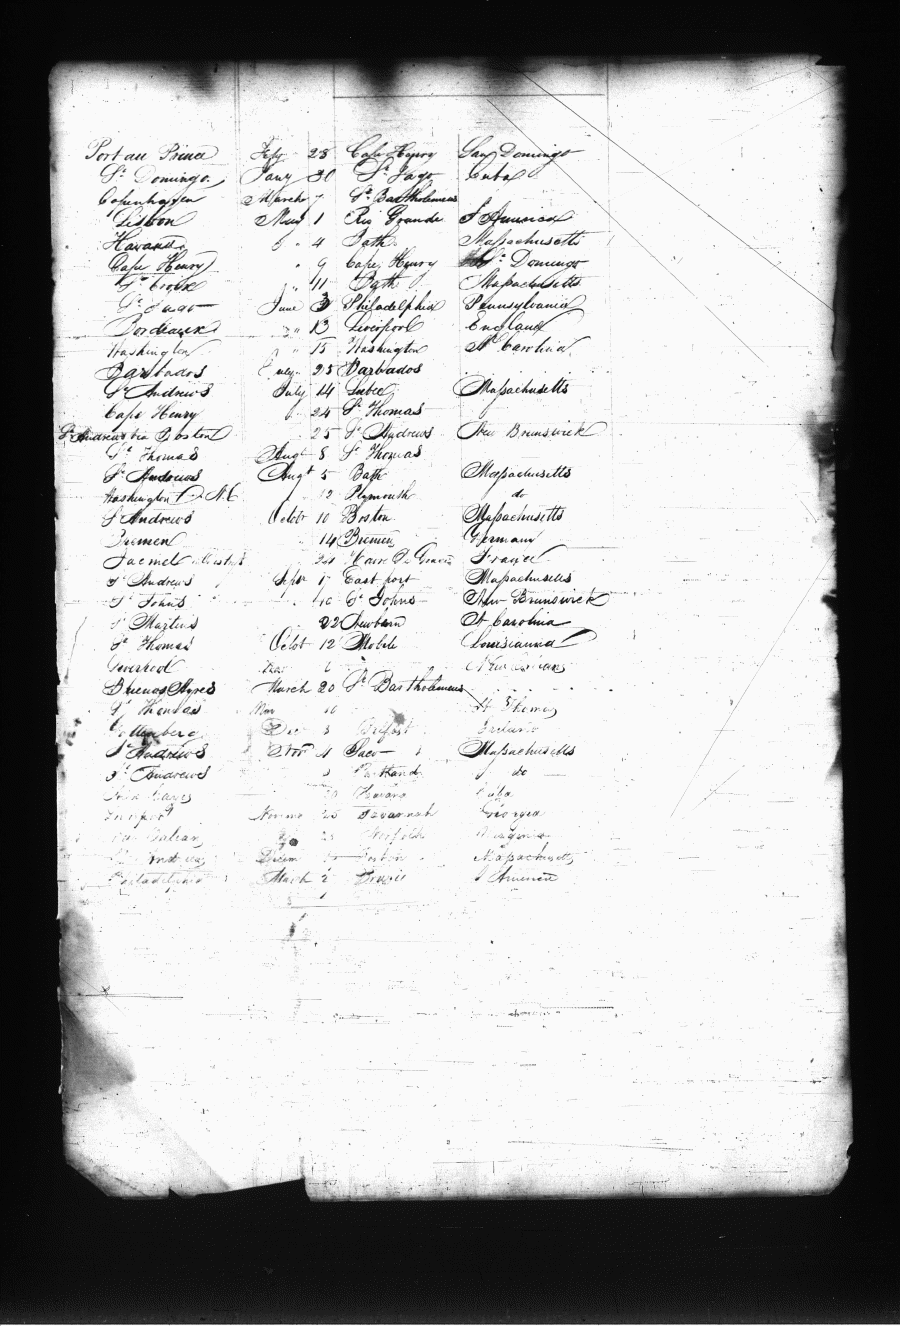 Port au Prince Feby 28 Cape Henry San Domingo
St Domingo Jany 30 St Jago Cuba
Copenhagen March 7 St Bartholemews
Lisbon May 1 Rio Grande S America
Havana " 4 Bath Massachusetts
Cape Henry " 9 Cape Henry St Domingo
St Croix " 11 Bath Massachusetts
St Jago June 3 Philadelphia Pennsylvania
Bordeaux " 13 Liverpool England
Washington " 15 Washington N Carolina
Barbados 25 Barbados
St Andrews July 14 Lubec Massachusetts
Cape Henry 24 St Thomas
St Andrews via Boston 25 St Andrews New Brunswick
St Thomas Augt 8 St Thomas
St Andrews Augt 5 Bath Massachusetts
Washington N.C 12 Plymouth do
St Andrews Octobr 10 Boston Massachusetts
Bremen 14 Bremen Germany
Jacmel 24 Havre De Grace France
St Andrews Sepr 17 East port Massachusetts
St Johns 16 St Johns New Brunswick
St Martins 22 Newbern N Carolina
St Thomas Octobr 12 Mobile Louisianna
Liverpool New Orleans
Buenos Ayres March 20 St Bartholemews
St Thomas Nov 16 St Thomas
Gottenberg Dec 3 Belfast Ireland
St Andrews Novr 4 Saco Massachusetts
St Andrews Portland do
Havana Cuba
25 Savannah Georgia
Norfolk Virginia
Boston Massachusetts
Philadelphia March 2 S America